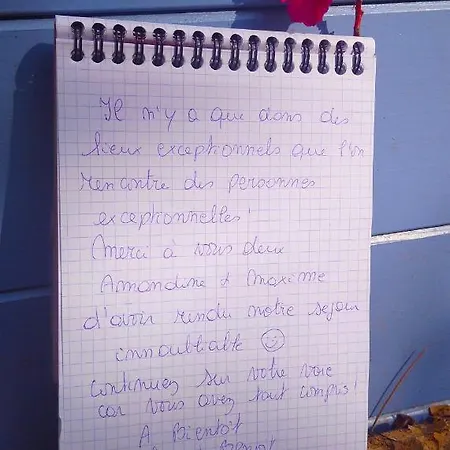 Il n'y a que dans des
lieux exceptionnels que l'on
rencontre des personnes
exceptionnelles!
Merci à vous deux
Amandine & Maxime
d'avoir rendu notre sejour
innoubliable ☺
Continuez sur votre voie
car vous avez tout compris!
A Bientôt